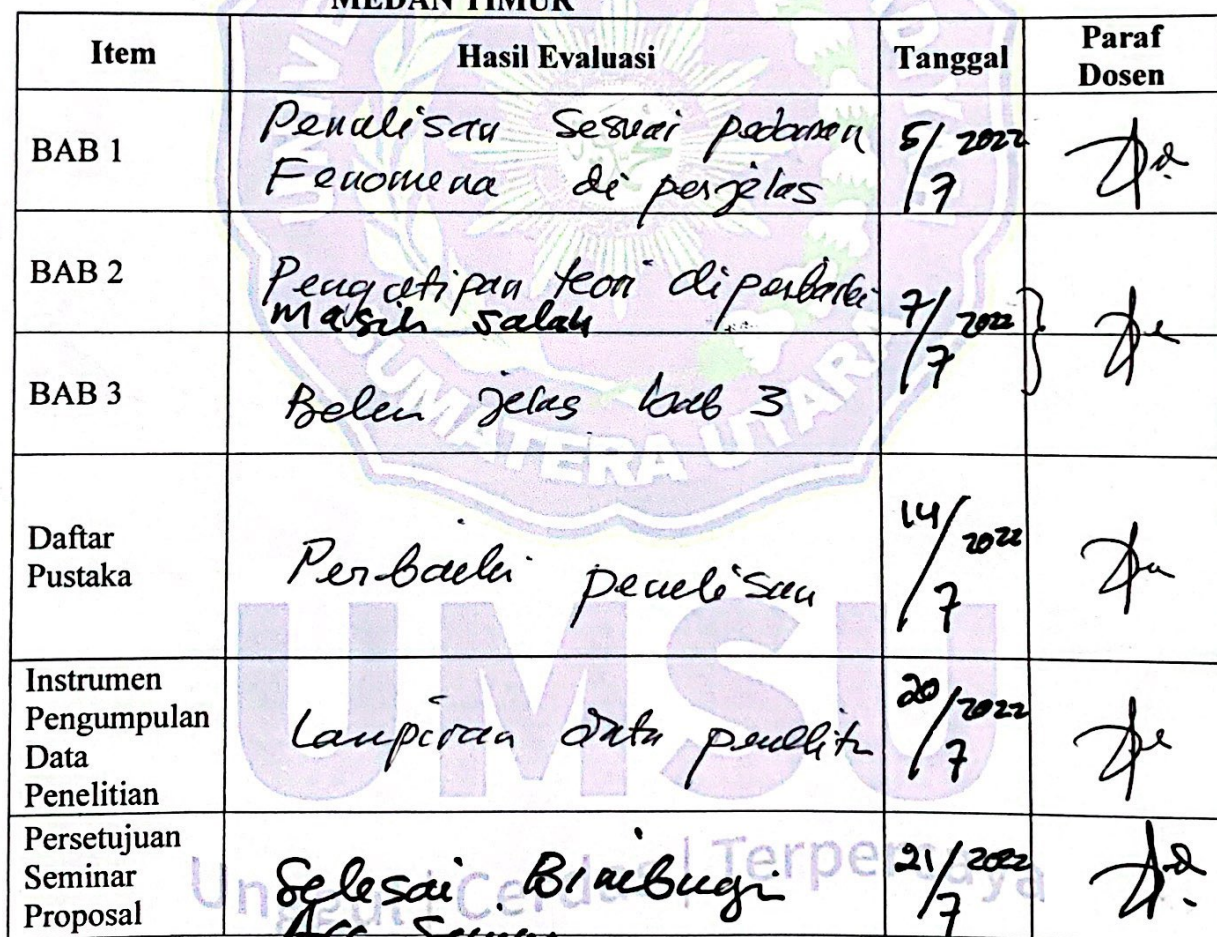 MEDAN TIMUR
Item Hasil Evaluasi Tanggal Paraf Dosen
BAB 1 Penulisan Sesuai pedoman 5/7 2022
Fenomena di perjelas
BAB 2 Pengutipan teori diperbaiki 7/7 2022
masih salah
BAB 3 Belum jelas bab 3
Daftar Pustaka Perbaiki penulisan 14/7 2022
Instrumen Pengumpulan Data Penelitian Lampiran data 20/7 2022
Persetujuan Seminar Proposal Selesai 21/7 2022
Acc
SUMATERA UTARA
UMSU
Unggul | Cerdas | Terpercaya